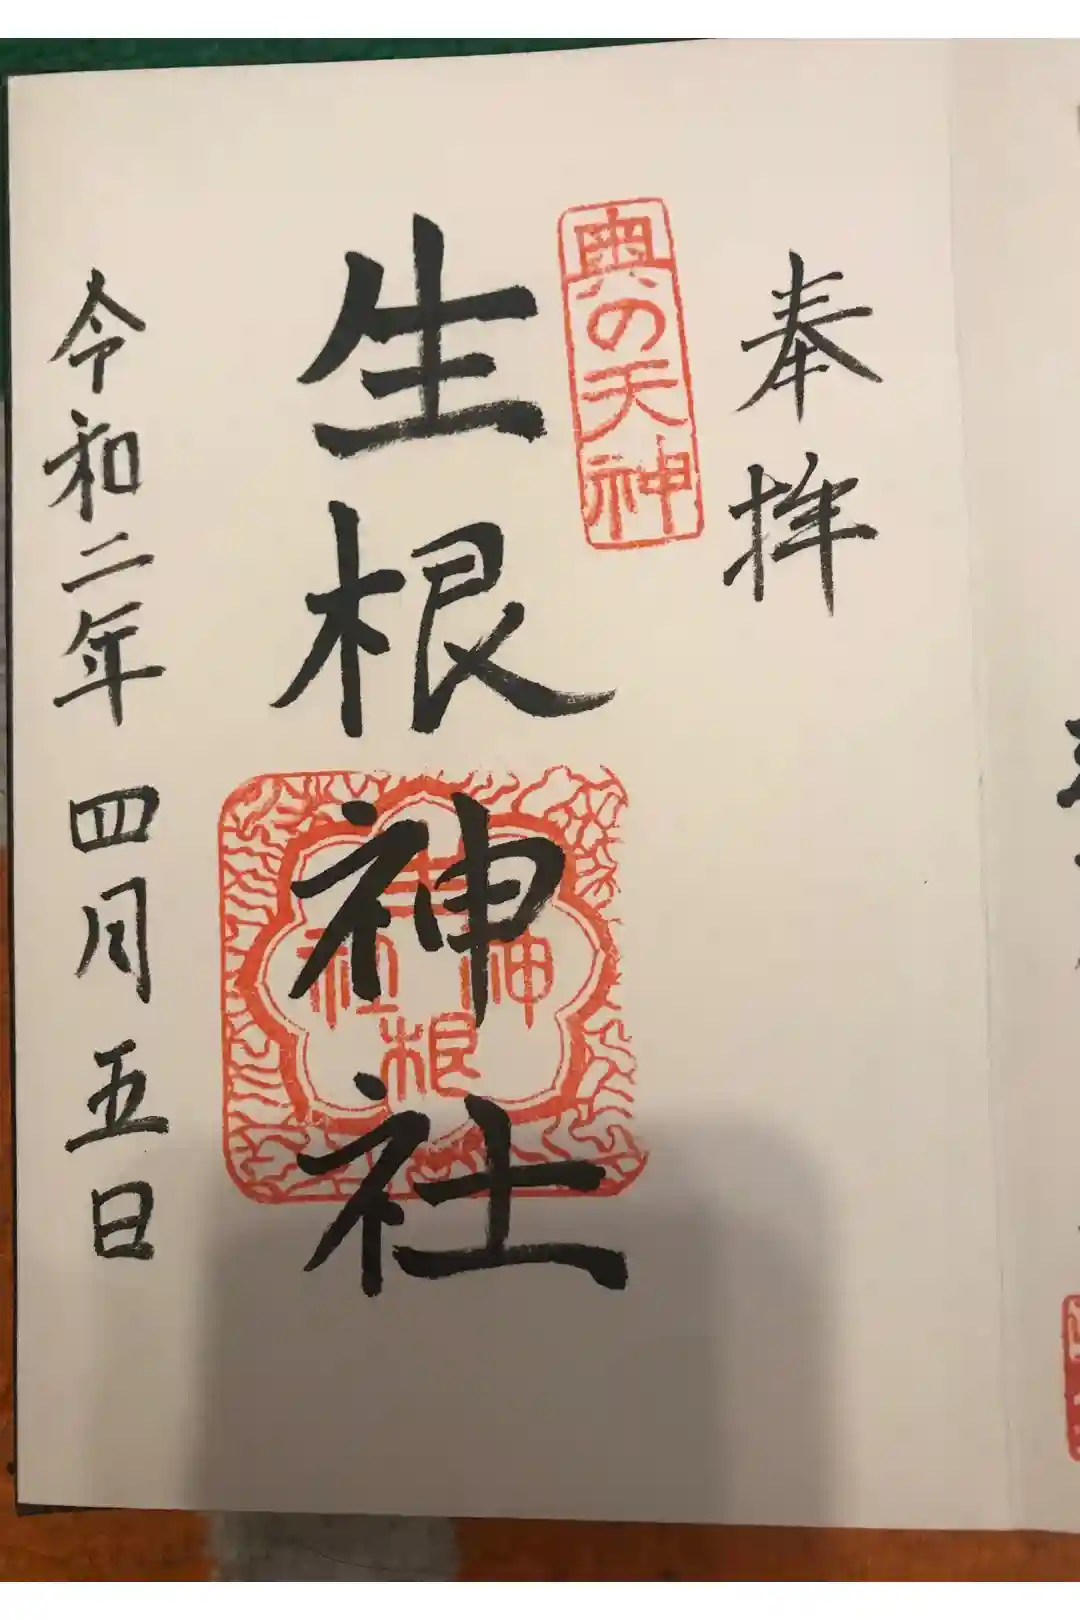 奉拝
奥の天神
生根神社
生根神社
令和二年四月五日